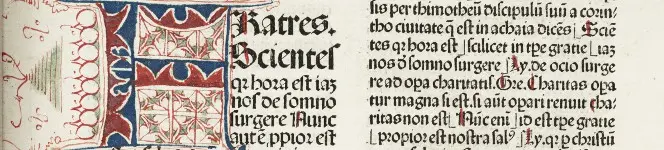 Ratres.
Scientes
qꝛ hora est iaʒ
nos de somno
surgere Nunc
aut̄ē ꝓpior est
sis per thimotheū discipulū suū a corin⸗
tho ciuitate q̄ est in achaia dicēs Scie⸗
tes qꝛ hora est scilicet in tꝑe gratie iaʒ
nos ō somno surgere Ly. de ocio surge
re ad opa charitatis. Gre. Charitas opa
tur magna si est. si aūt opari renuit cha⸗
ritas non est Nūc enī id est tꝑe gratie
propior est nostra salꝰ Ly. qꝛ ꝑ christū